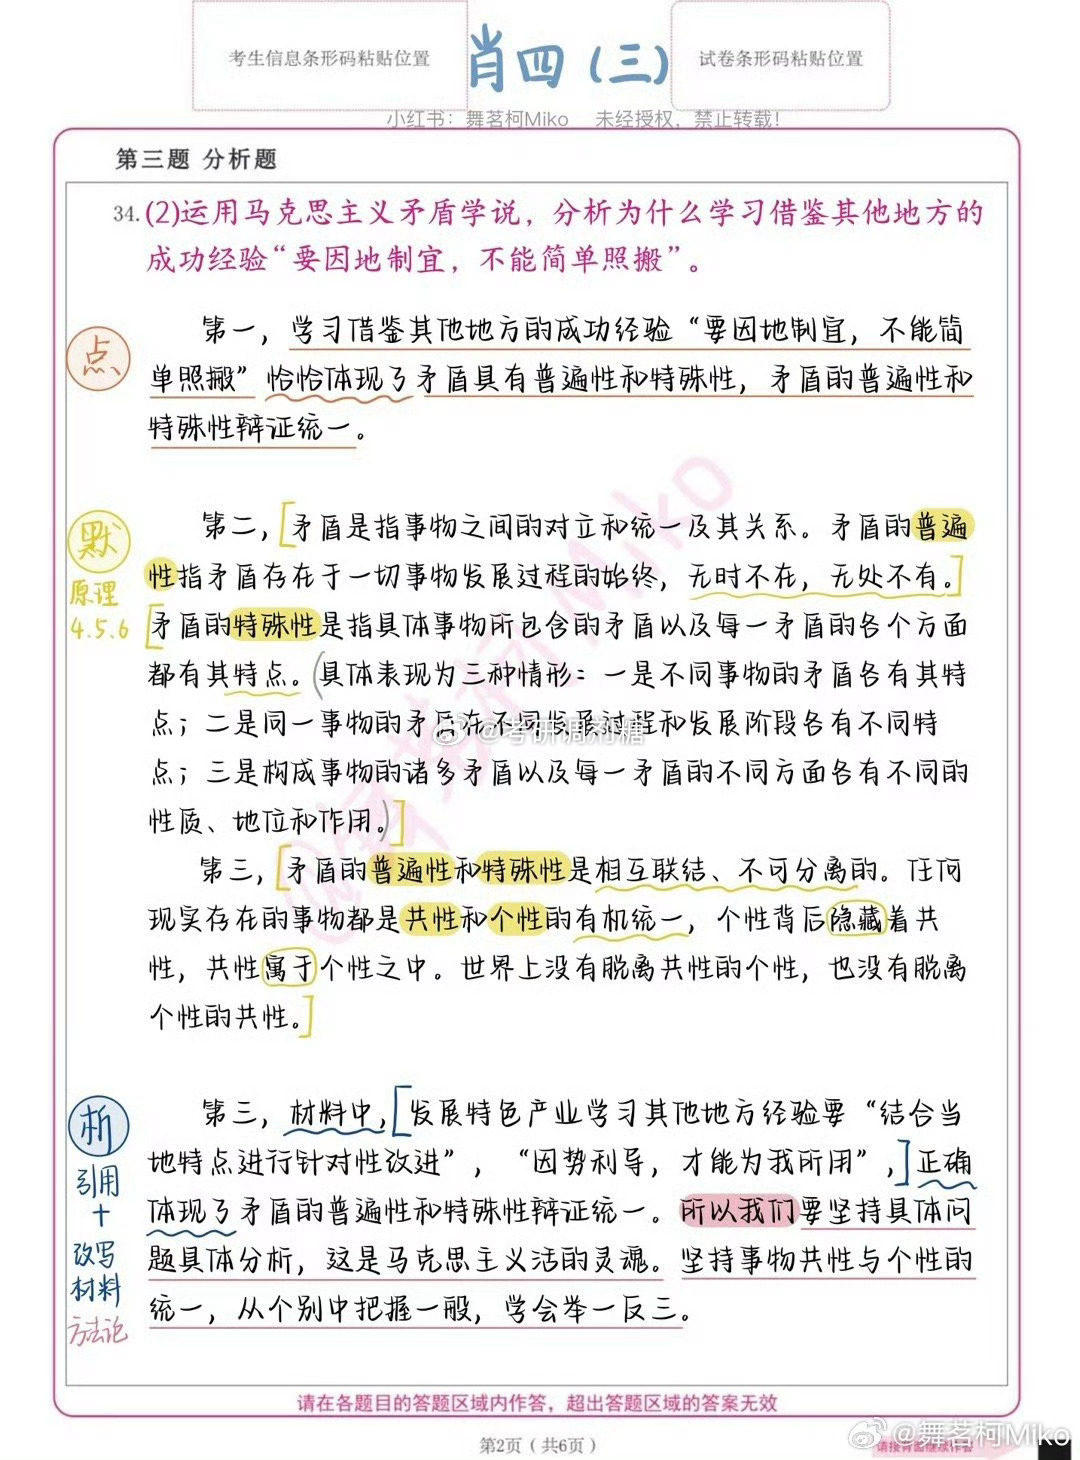 考生信息条形码粘贴位置
肖四(三)
试卷条形码粘贴位置
小红书：舞茗柯Miko 未经授权，禁止转载！
第三题 分析题
34.(2)运用马克思主义矛盾学说，分析为什么学习借鉴其他地方的
成功经验“要因地制宜，不能简单照搬”。
点
第一，学习借鉴其他地方的成功经验“要因地制宜，不能简
单照搬”恰恰体现了矛盾具有普遍性和特殊性，矛盾的普遍性和
特殊性辩证统一。
默
原理
4.5.6
第二，[矛盾是指事物之间的对立和统一及其关系。矛盾的普遍
性指矛盾存在于一切事物发展过程的始终，无时不在，无处不有。]
[矛盾的特殊性是指具体事物所包含的矛盾以及每一矛盾的各个方面
都有其特点。(具体表现为三种情形：一是不同事物的矛盾各有其特
点；二是同一事物的矛盾在不同发展过程和发展阶段各有不同特
点；三是构成事物的诸多矛盾以及每一矛盾的不同方面各有不同的
性质、地位和作用。)]
第三，[矛盾的普遍性和特殊性是相互联结、不可分离的。任何
现实存在的事物都是共性和个性的有机统一，个性背后隐藏着共
性，共性寓于个性之中。世界上没有脱离共性的个性，也没有脱离
个性的共性。]
析
引用
+
改写
材料
方法论
第三，材料中，[发展特色产业学习其他地方经验要“结合当
地特点进行针对性改进”，“因势利导，才能为我所用”，]正确
体现了矛盾的普遍性和特殊性辩证统一。所以我们要坚持具体问
题具体分析，这是马克思主义活的灵魂。坚持事物共性与个性的
统一，从个别中把握一般，学会举一反三。
@舞茗柯Miko
@考研调剂糖
请在各题目的答题区域内作答，超出答题区域的答案无效
第2页（共6页）
请接背面继续作答
@舞茗柯Miko